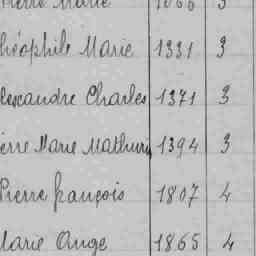 Marie 3
héophile Marie 1331 3
lexandre Charles 1371 3
erre Marie Mathurin 1394 3
Pierre françois 1807 4
Marie Ange 1865 4